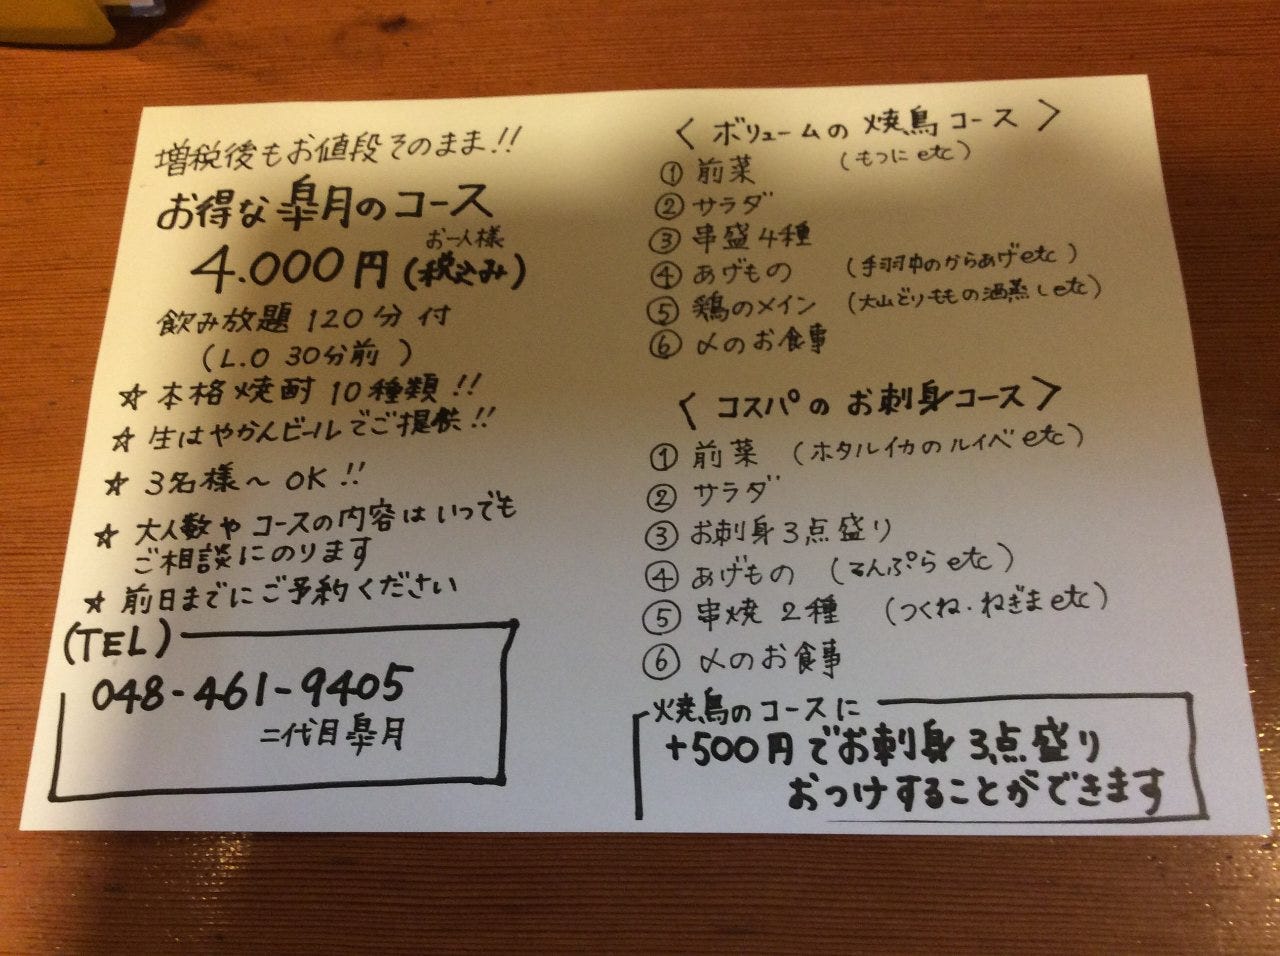 増税後もお値段そのまま!!
お得な皐月のコース
お一人様
4.000円(税込み)
飲み放題 120分付
(L.O 30分前)
☆ 本格焼酎10種類!!
☆ 生はやかんビールでご提供!!
☆ 3名様〜OK!!
☆ 大人数やコースの内容はいつでも
ご相談にのります
☆ 前日までにご予約ください
(TEL)
048-461-9405
二代目皐月
〈ボリュームの焼鳥コース〉
① 前菜 (もつに etc)
② サラダ
③ 串盛4種
④ あげもの (手羽中のからあげetc)
⑤ 鶏のメイン (大山どりももの酒蒸しetc)
⑥ 〆のお食事
〈コスパのお刺身コース〉
① 前菜 (ホタルイカのルイベetc)
② サラダ
③ お刺身3点盛り
④ あげもの (てんぷらetc)
⑤ 串焼 2種 (つくね・ねぎまetc)
⑥ 〆のお食事
焼鳥のコースに
+500円でお刺身3点盛り
おつけすることができます